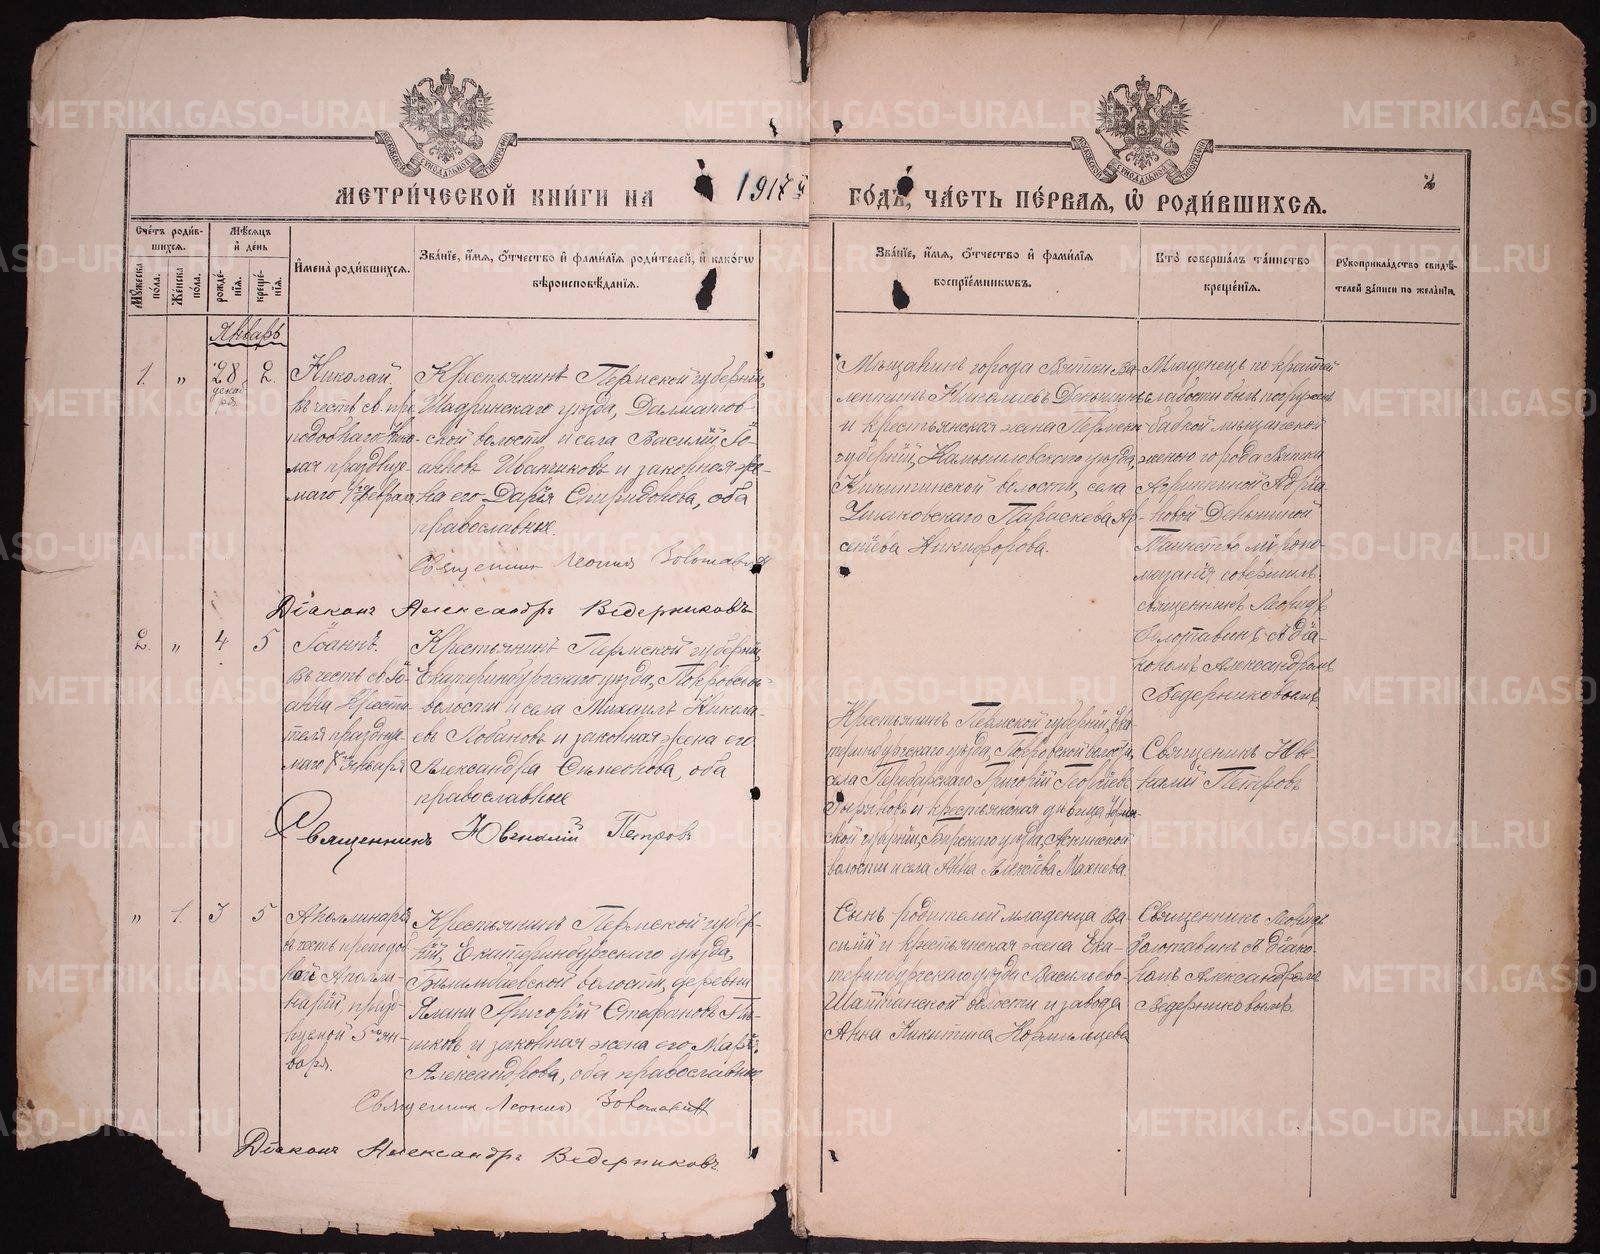 МЕТРИ́ЧЕСКОЙ КНИ́ГИ НА 1917 й
ГО́ДЪ, ЧА́СТЬ ПЕ́РВАЯ, Ѡ РОДИ́ВШИХСЯ.
2
Сче́тъ роди́в-
шихся.
Му́жеска по́ла.
Же́нска по́ла.
Мѣ́сяцъ
и҆ де́нь
рожде́нїя.
креще́нїя.
И҆мена̀ роди́вшихся.
Зва́нїе, и҆́мя, ѻ҆́тчество и҆ фами́лїя роди́телей, и҆ како́гѡ
вѣроисповѣ́данїя.
Зва́нїе, и҆́мя, ѻ҆́тчество и҆ фами́лїя
воспрїе́мниковъ.
Кто̀ соверша́лъ та́инство
креще́нїя.
Рꙋкоприкла́дство свидѣ́-
телей за́писи по жела́нїю.
Январь
1.
"
28
декаб
ря
2.
Николай.
въ честь св. пре
подобнаго Нико
лая празднуе-
маго 4го февраля
Крестьянинъ Пермской губерніи,
Шадринскаго уѣзда, Далматов-
ской волости и села Василій Іо-
анновъ Иванчиковъ и законная же-
на его Дарія Спиридонова, оба
православные.
Священник Леонид Золотавин
Діаконъ Александръ Ведерниковъ
Мѣщанинъ города Вятки Ва-
лентинъ Николаевъ Деньшинъ
и крестьянская жена Пермской
губерніи, Камышловскаго уѣзда,
Никитинской волости, села
Ушаковскаго Параскева Ар-
сеніева Никифорова.
Младенецъ по крайней
слабости былъ погруженъ
бабкой мѣщанской
женою города Вятки
Агриппиной Адріа-
новой Деньшиной
Таинство мѵропо-
мазанія совершилъ
священникъ Леонидъ
Золотавинъ съ діа-
кономъ Александромъ
Ведерниковымъ
2.
"
4
5
Іоаннъ.
Въ честь св. Іо-
анна Крести-
теля праздну-
маго 7го января
Крестьянинъ Пермской губерніи,
Екатеринбургскаго уѣзда, Покровской
волости и села Михаилъ Никола-
евъ Лобановъ и законная жена его
Александра Симеонова, оба
православные
Священникъ Ювеналій Петровъ
Крестьянинъ Пермской губерніи, Ека-
теринбургскаго уѣзда, Покровской волости,
села Григорій Георгіевъ
и крестьянская дѣвица Уфим-
ской губерніи, Бирскаго уѣзда, Аскинской
волости и села Анна Алексіева Махнева.
Священникъ Юве-
налій Петровъ
"
1.
3
5
Аполлинарія
въ честь преподоб
ной Аполли-
наріи, празд-
нуемой 5го ян-
варя.
Крестьянинъ Пермской губер-
ніи, Екатеринбургскаго уѣзда,
Билимбаевской волости, деревни
Григорій Стефановъ Пь-
и законная жена его Марія
Александрова, оба православные
Священник Леонид Золотавин
Діаконъ Александръ Ведерниковъ.
Сынъ родителей младенца Ва-
силій и крестьянская жена Ека-
теринбургскаго уѣзда Васильево-
Шайтанской волости и завода
Анна Никитина Кормильцева
Священникъ Леонидъ
Золотавинъ съ діако-
номъ Александромъ
Ведерниковымъ.
METRIKI.GASO-URAL.RU